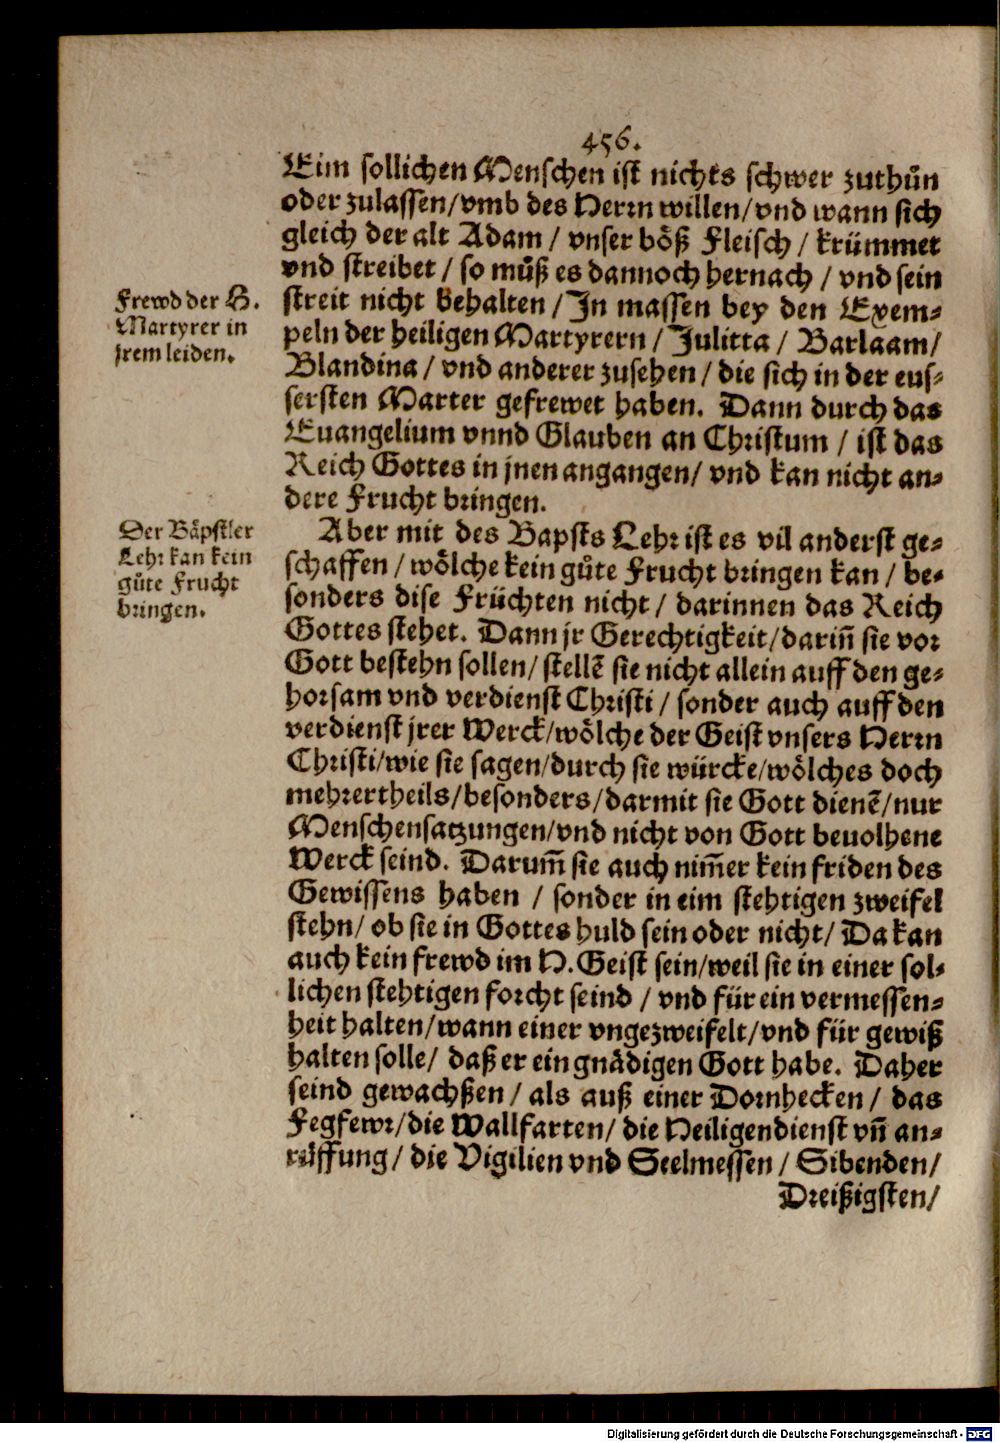 456.
Eim sollichen Menschen ist nichts schwer zuthůn
oder zulassen/vmb des Herrn willen/vnd wann sich
gleich der alt Adam / vnser böß Fleisch / krümmet
vnd streibet / so můß es dannoch hernach / vnd sein
streit nicht behalten / In massen bey den Exem-
peln der heiligen Martyrern / Julitta / Barlaam/
Blandina / vnd anderer zusehen / die sich in der eus-
sersten Marter gefrewet haben. Dann durch das
Euangelium vnnd Glauben an Christum / ist das
Reich Gottes in jnen angangen/ vnd kan nicht an-
dere Frucht bringen.
Frewd der H.
Martyrer in
jrem leiden.
Aber mit des Bapsts Lehr ist es vil anderst ge-
schaffen / wölche kein gůte Frucht bringen kan / be-
sonders dise Früchten nicht / darinnen das Reich
Gottes stehet. Dann jr Gerechtigkeit/darin̄ sie vor
Gott bestehn sollen/ stellē sie nicht allein auff den ge-
horsam vnd verdienst Christi / sonder auch auff den
verdienst jrer Werck/wölche der Geist vnsers Herrn
Christi/wie sie sagen/durch sie würcke/wölches doch
mehrertheils/besonders/darmit sie Gott dienē/nur
Menschensatzungen/vnd nicht von Gott beuolhene
Werck seind. Darum̄ sie auch nim̄er kein friden des
Gewissens haben / sonder in eim stehtigen zweifel
stehn/ ob sie in Gottes huld sein oder nicht/ Da kan
auch kein frewd im H. Geist sein/weil sie in einer sol-
lichen stehtigen forcht seind / vnd für ein vermessen-
heit halten/wann einer vngezweifelt/vnd für gewiß
halten solle/ daß er ein gnädigen Gott habe. Daher
seind gewachßen / als auß einer Dornhecken / das
Fegfewr/die Wallfarten/ die Heiligendienst vn̄ an-
růffung/ die Vigilien vnd Seelmessen / Sibenden/
Dreißigsten/
Der Bäpstler
Lehr kan kein
gůte Frucht
bringen.
Digitalisierung gefördert durch die Deutsche Forschungsgemeinschaft - DFG